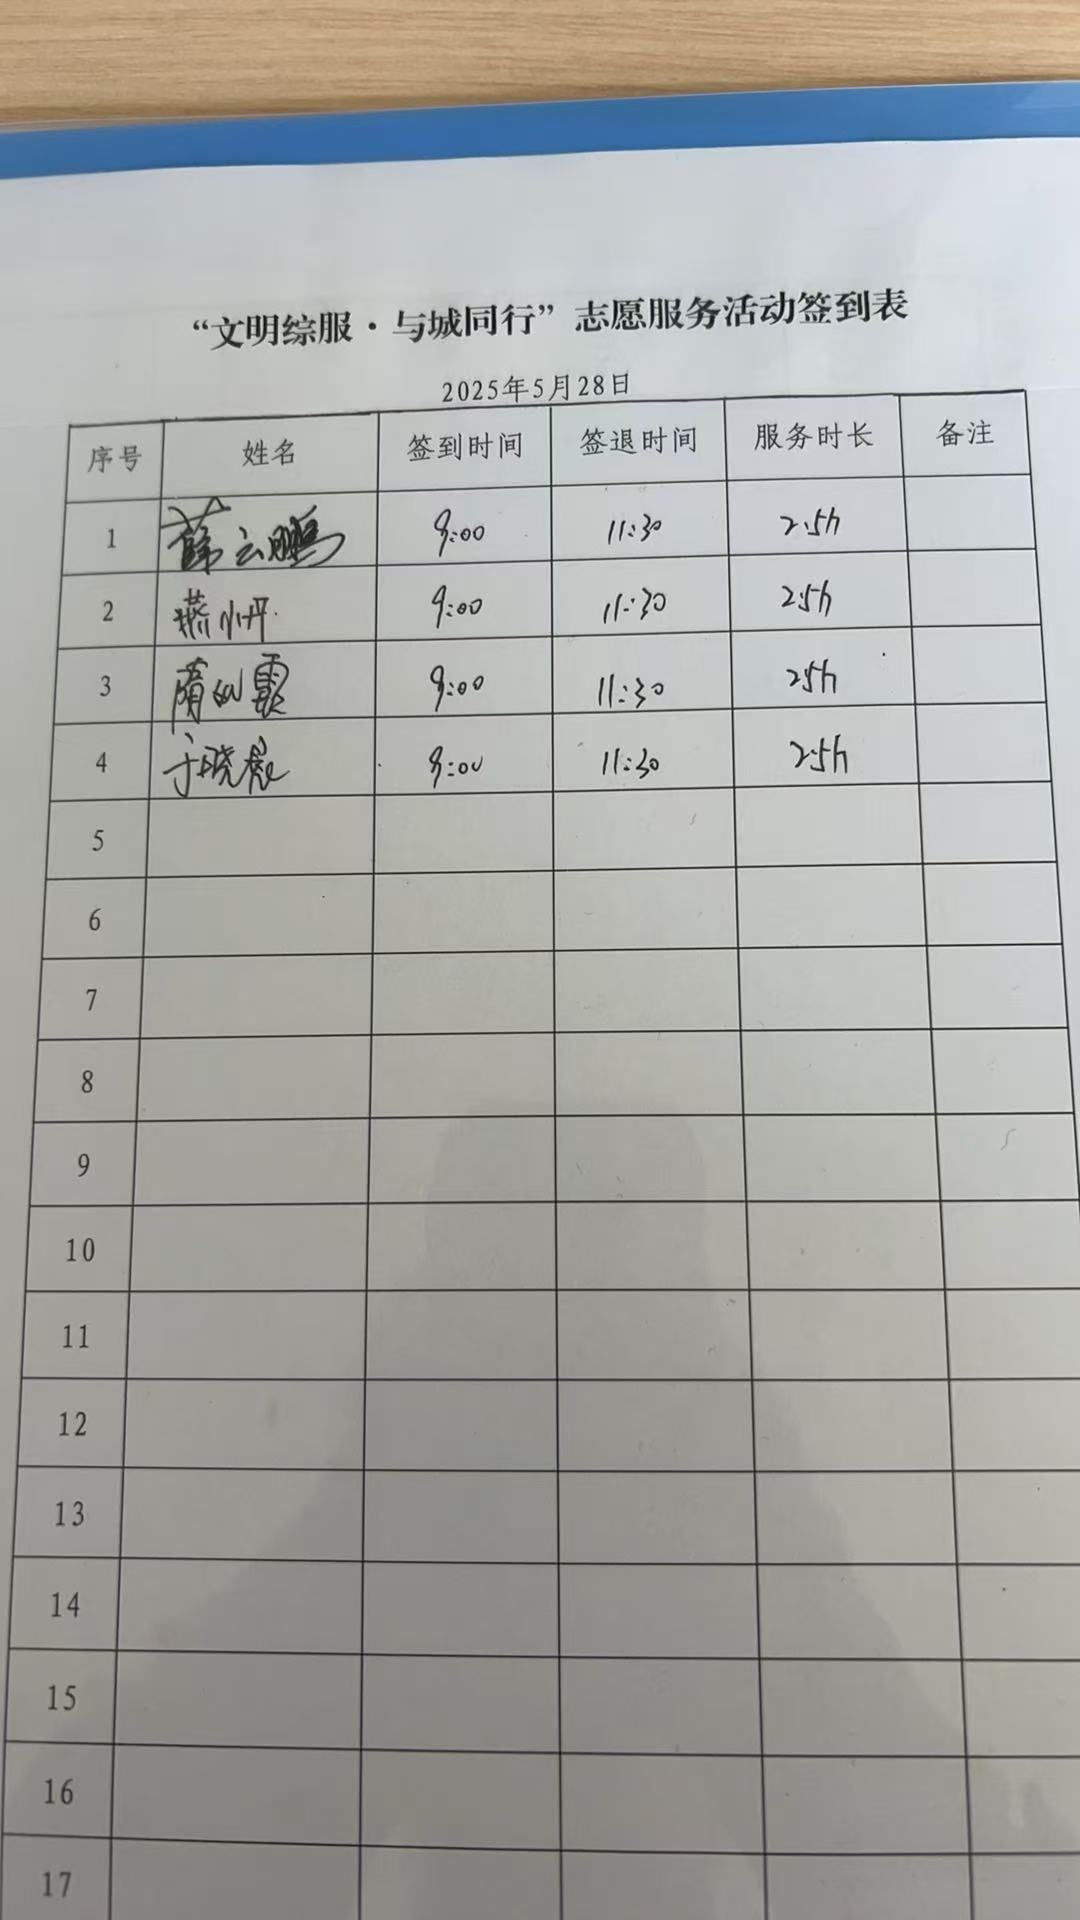 “文明综服·与城同行”志愿服务活动签到表
2025年5月28日
序号 姓名 签到时间 签退时间 服务时长 备注
1 薛云鹏 9:00 11:30 2.5h
2 燕小丹 9:00 11:30 2.5h
3 隋 霞 9:00 11:30 2.5h
4 于晓晨 9:00 11:30 2.5h
5
6
7
8
9
10
11
12
13
14
15
16
17